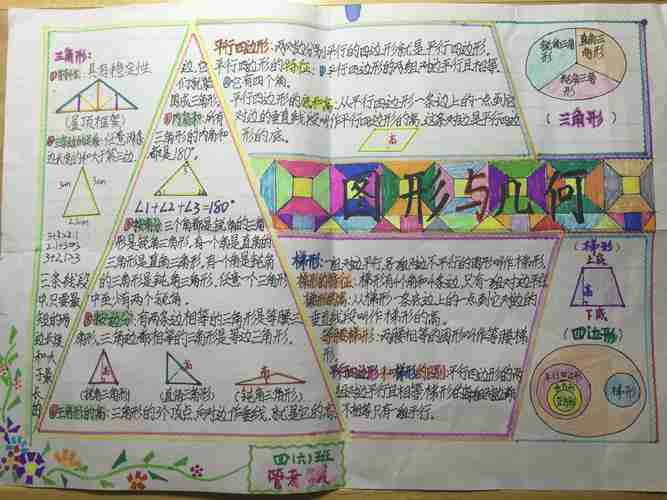 三角形:
①特性: 具有稳定性
(屋顶框架)
②三边的关系: 任意两条
边长度的和大于第三边.
3cm 3cm
2.1cm
3+3>2.1
2.1+3>3
3+2.1>3
三条线段
中只要最
短的两
边长度
和大
于最
长的
边,它
们就能
围成三角形.
③内角和:所有
三角形的内角和
都是180°.
∠1+∠2+∠3=180°
④按角分:三个角都是锐角的三角
形是锐角三角形,有一个角是直角的
三角形是直角三角形,有一个角是钝角
的三角形是钝角三角形,任意一个三角形
中至少有两个锐角.
⑤按边分:有两条边相等的三角形是等腰三
角形,三角边都相等的三角形是等边三角形.
高
(锐角三角形)
(直角三角形)
高
(钝角三角形)
⑥三角形的高:三角形的3个顶点,向对边作垂线
平行四边形:两组对边分别平行的四边形就是平行四边形.
平行四边形的特征:①平行四边形的两组对边平行且相等.
②它有四个角.
平行四边形的底和高:从平行四边形一条边上的一点到它
对边的垂直线段叫作平行四边形的高,这条对边是平行四边
形的底.
高
锐角三角形
直角三角形
钝角三角形
(三角形)
图形与几何
梯形:一组对边平行,另一组对边不平行的图形叫作梯形.
梯形的特征:梯形有4个角和4条边,只有一组对边平行
梯形的高:从梯形一条底边上的一点到它对边的
垂直线段叫作梯形的高.
等腰梯形:两腰相等的图形叫作等腰梯
形.
平行四边形和梯形的区别:平行四边形的两
组对边平行且相等,梯形的
不相等,只有一组平行.
(梯形)
上底
高
下底
(四边形)
平行四边形
长方形
正方形
梯形
四(六)班